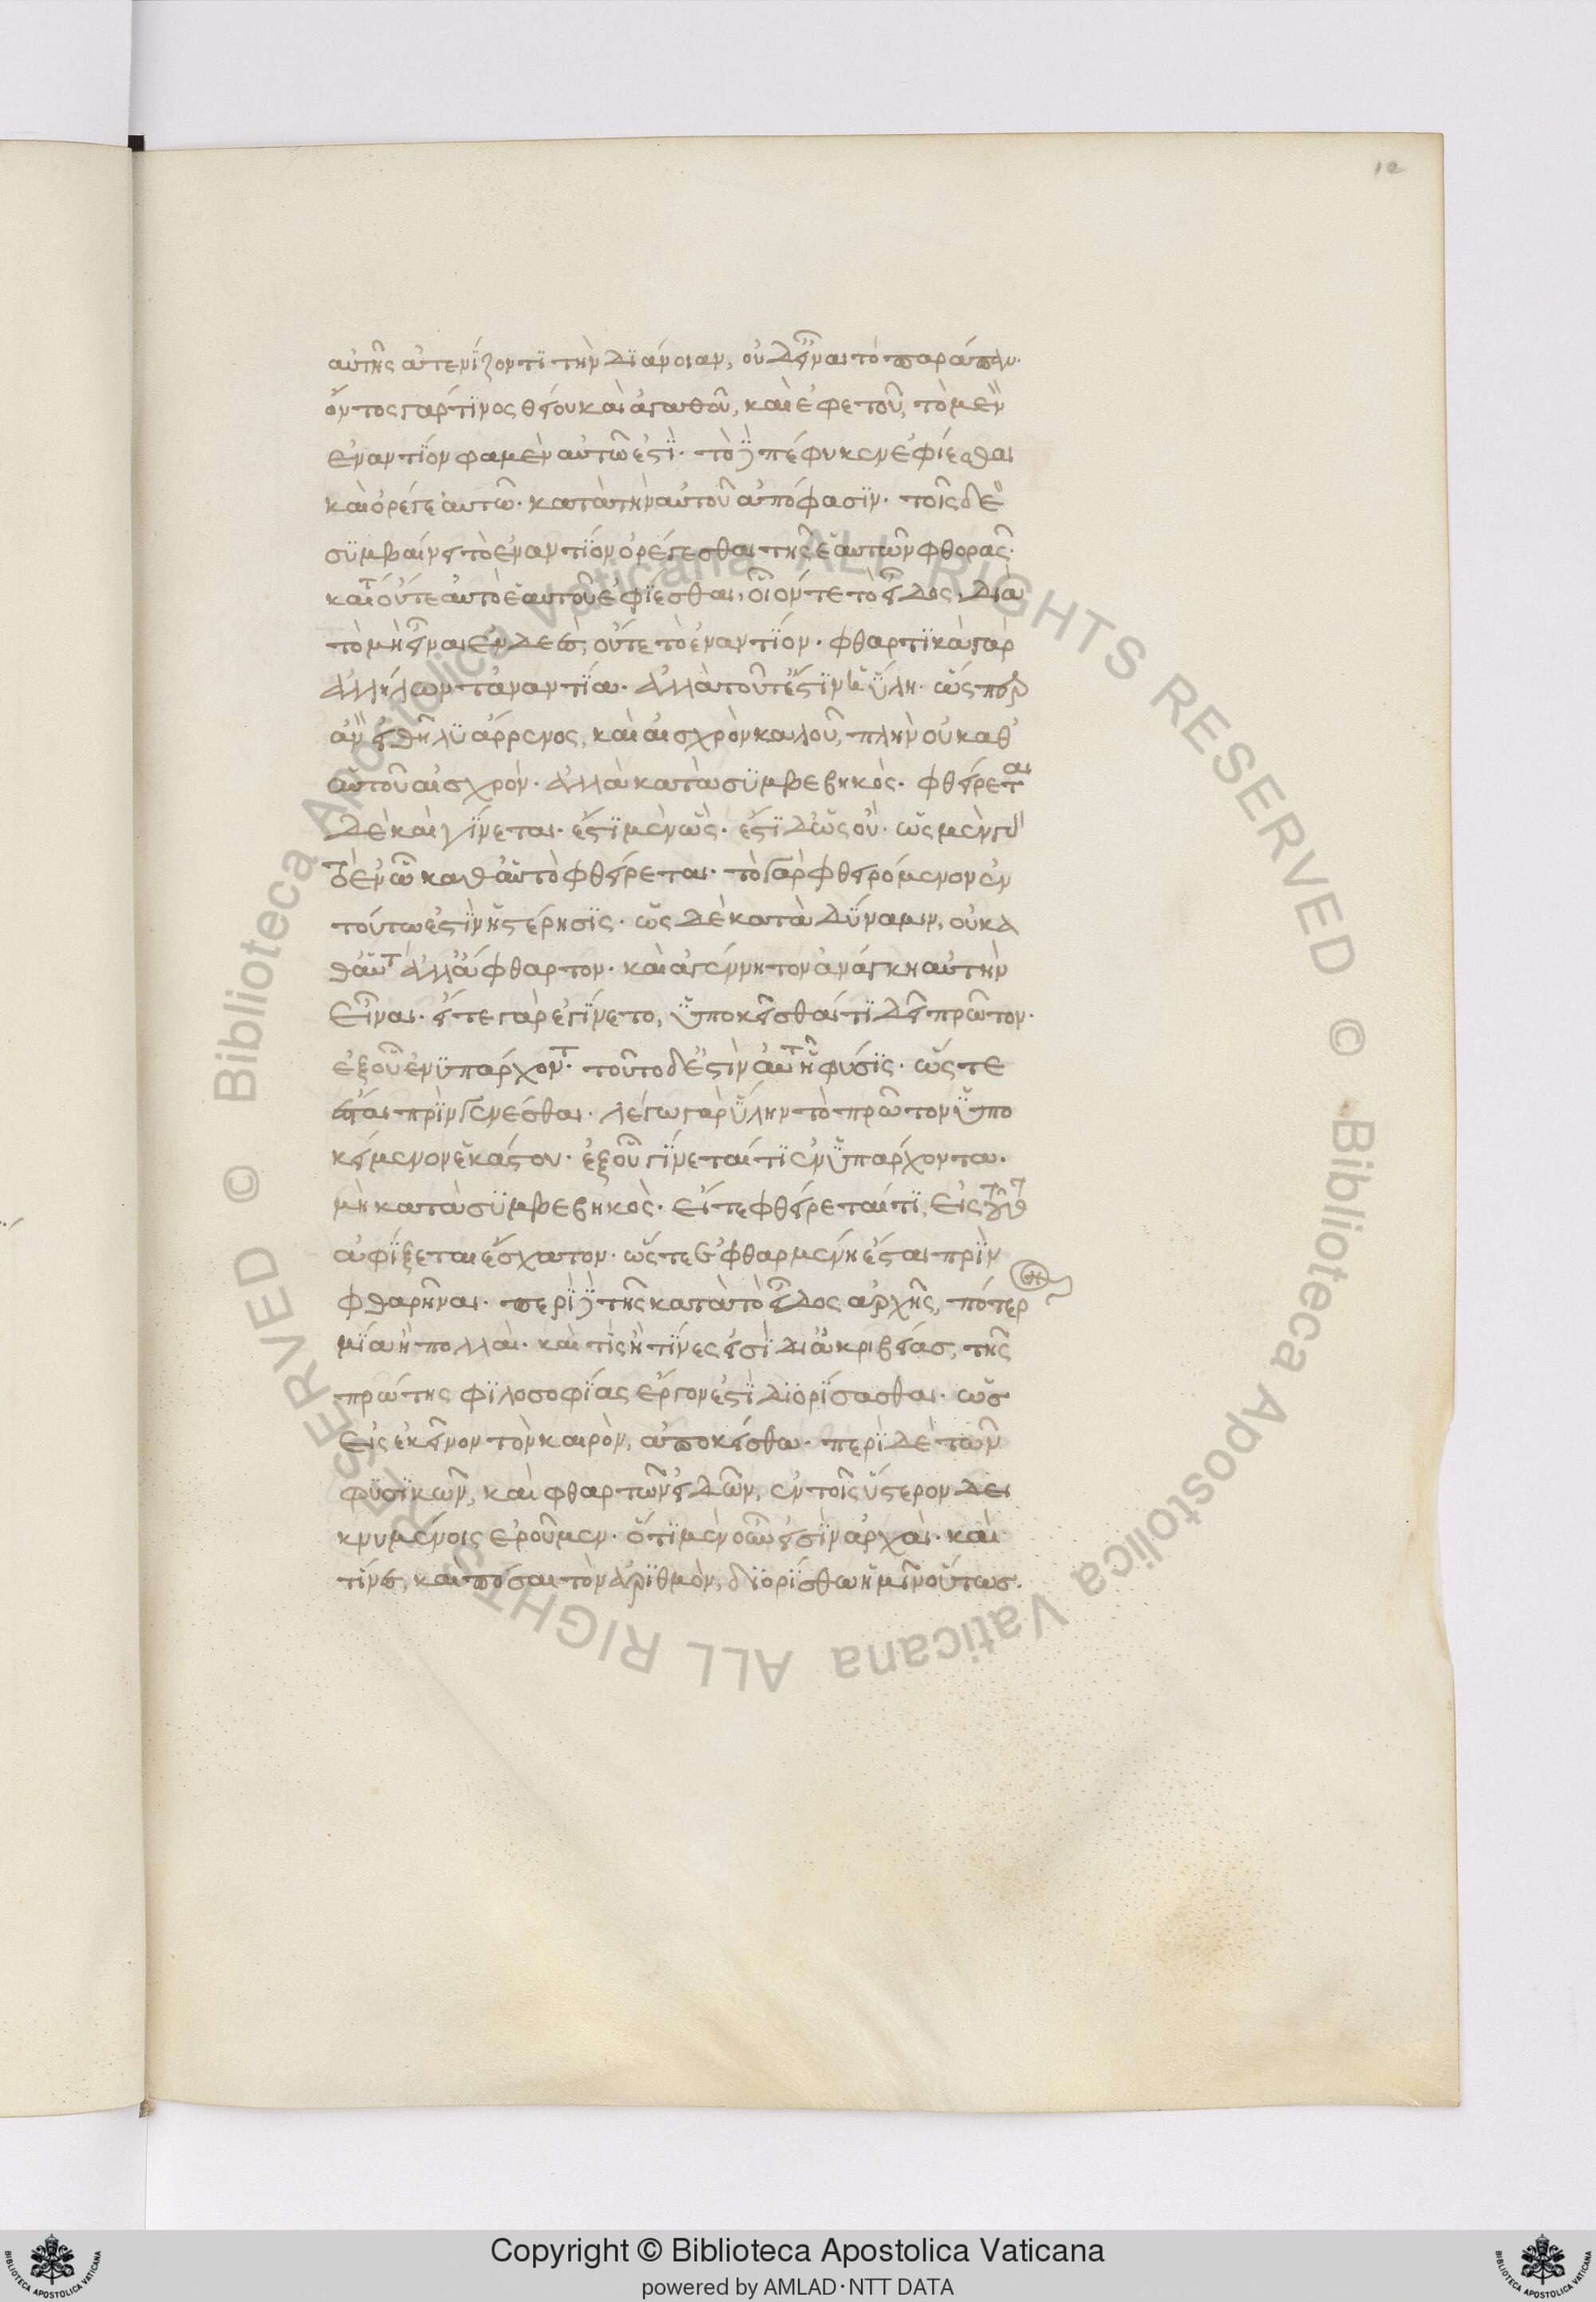 12
αὐτῆς ἀτενίζοντι τὴν διάνοιαν, οὐδ' εἶναι τὸ παράπαν.
ὄντος γάρ τινος θείου καὶ ἀγαθοῦ, καὶ ἐφετοῦ, τὸ μὲν
ἐναντίον φαμὲν αὐτῶ ἐστὶ. τὸ δὲ πέφυκεν ἐφίεσθαι
καὶ ὀρέγεσθαι αὐτῶ. κατὰ τὴν αὐτοῦ ἀπόφασιν. τοῖς δὲ
συμβαίνει τὸ ἐναντίον ὀρέγεσθαι τῆς ἑαυτῶν φθορᾶς.
καίτοι οὔτε αὐτὸ ἑαυτοῦ ἐφίεσθαι, οἷόν τε τὸ εἶδος, διὰ
τὸ μὴ εἶναι ἐνδεές, οὔτε τὸ ἐναντίον. φθαρτικὰ γὰρ
ἀλλήλων τἀναντία. ἀλλὰ τοῦτ' ἔστιν ἡ ὕλη. ὥσπερ
ἂν εἰ θῆλυ ἄρρενος, καὶ αἰσχρὸν καλοῦ, πλὴν οὐ καθ'
αὑτοῦ αἰσχρόν. ἀλλὰ κατὰ συμβεβηκός. φθείρεται
δὲ καὶ γίνεται. ἔστι μὲν ὥς. ἔστι δ' ὡς οὔ. ὡς μὲν γὰρ
τὸ ἐν ὧ καθ' αὑτὸ φθείρεται. τὸ γὰρ φθειρόμενον ἐν
τούτω ἐστὶν ἡ στέρησις. ὡς δὲ κατὰ δύναμιν, οὐ κα
θ' αὑτὸ ἀλλ' ἄφθαρτον. καὶ ἀγέννητον ἀνάγκη αὐτὴν
εἶναι. εἴτε γὰρ ἐγίνετο, ὑποκεῖσθαί τι δεῖ πρῶτον.
ἐξ οὗ ἐνυπάρχοντος. τοῦτο δ' ἐστὶν αὐτὴ ἡ φύσις. ὥστε
ἔσται πρὶν γενέσθαι. λέγω γὰρ ὕλην τὸ πρῶτον ὑπο
κείμενον ἑκάστου. ἐξ οὗ γίνεταί τι ἐνυπάρχοντα.
μὴ κατὰ συμβεβηκός. εἴτε φθείρεταί τι, εἰς τοῦτο
ἀφίξεται ἔσχατον. ὥστε ἐφθαρμένη ἔσται πρὶν
φθαρῆναι. περὶ δὲ τῆς κατὰ τὸ εἶδος ἀρχῆς, πότερον
μία ἢ πολλαὶ. καὶ τίς ἢ τίνες εἰσὶ δι' ἀκριβείας, τῆς
πρώτης φιλοσοφίας ἔργον ἐστὶ διορίσασθαι. ὥς
εἰς ἐκεῖνον τὸν καιρὸν, ἀποκείσθω. περὶ δὲ τῶν
φυσικῶν, καὶ φθαρτῶν εἰδῶν, ἐν τοῖς ὕστερον δει
κνυμένοις ἐροῦμεν. ὅτι μὲν οὖν εἰσὶν ἀρχαὶ. καὶ
τίνες, καὶ πόσαι τὸν ἀριθμὸν, διορίσθω ἡμῖν οὕτως.
ALL RIGHTS RESERVED © Biblioteca Apostolica Vaticana ALL RIGHTS RESERVED © Biblioteca Apostolica Vaticana
Copyright © Biblioteca Apostolica Vaticana
powered by AMLAD·NTT DATA
BIBLIOTECA APOSTOLICA VATICANA
BIBLIOTECA APOSTOLICA VATICANA